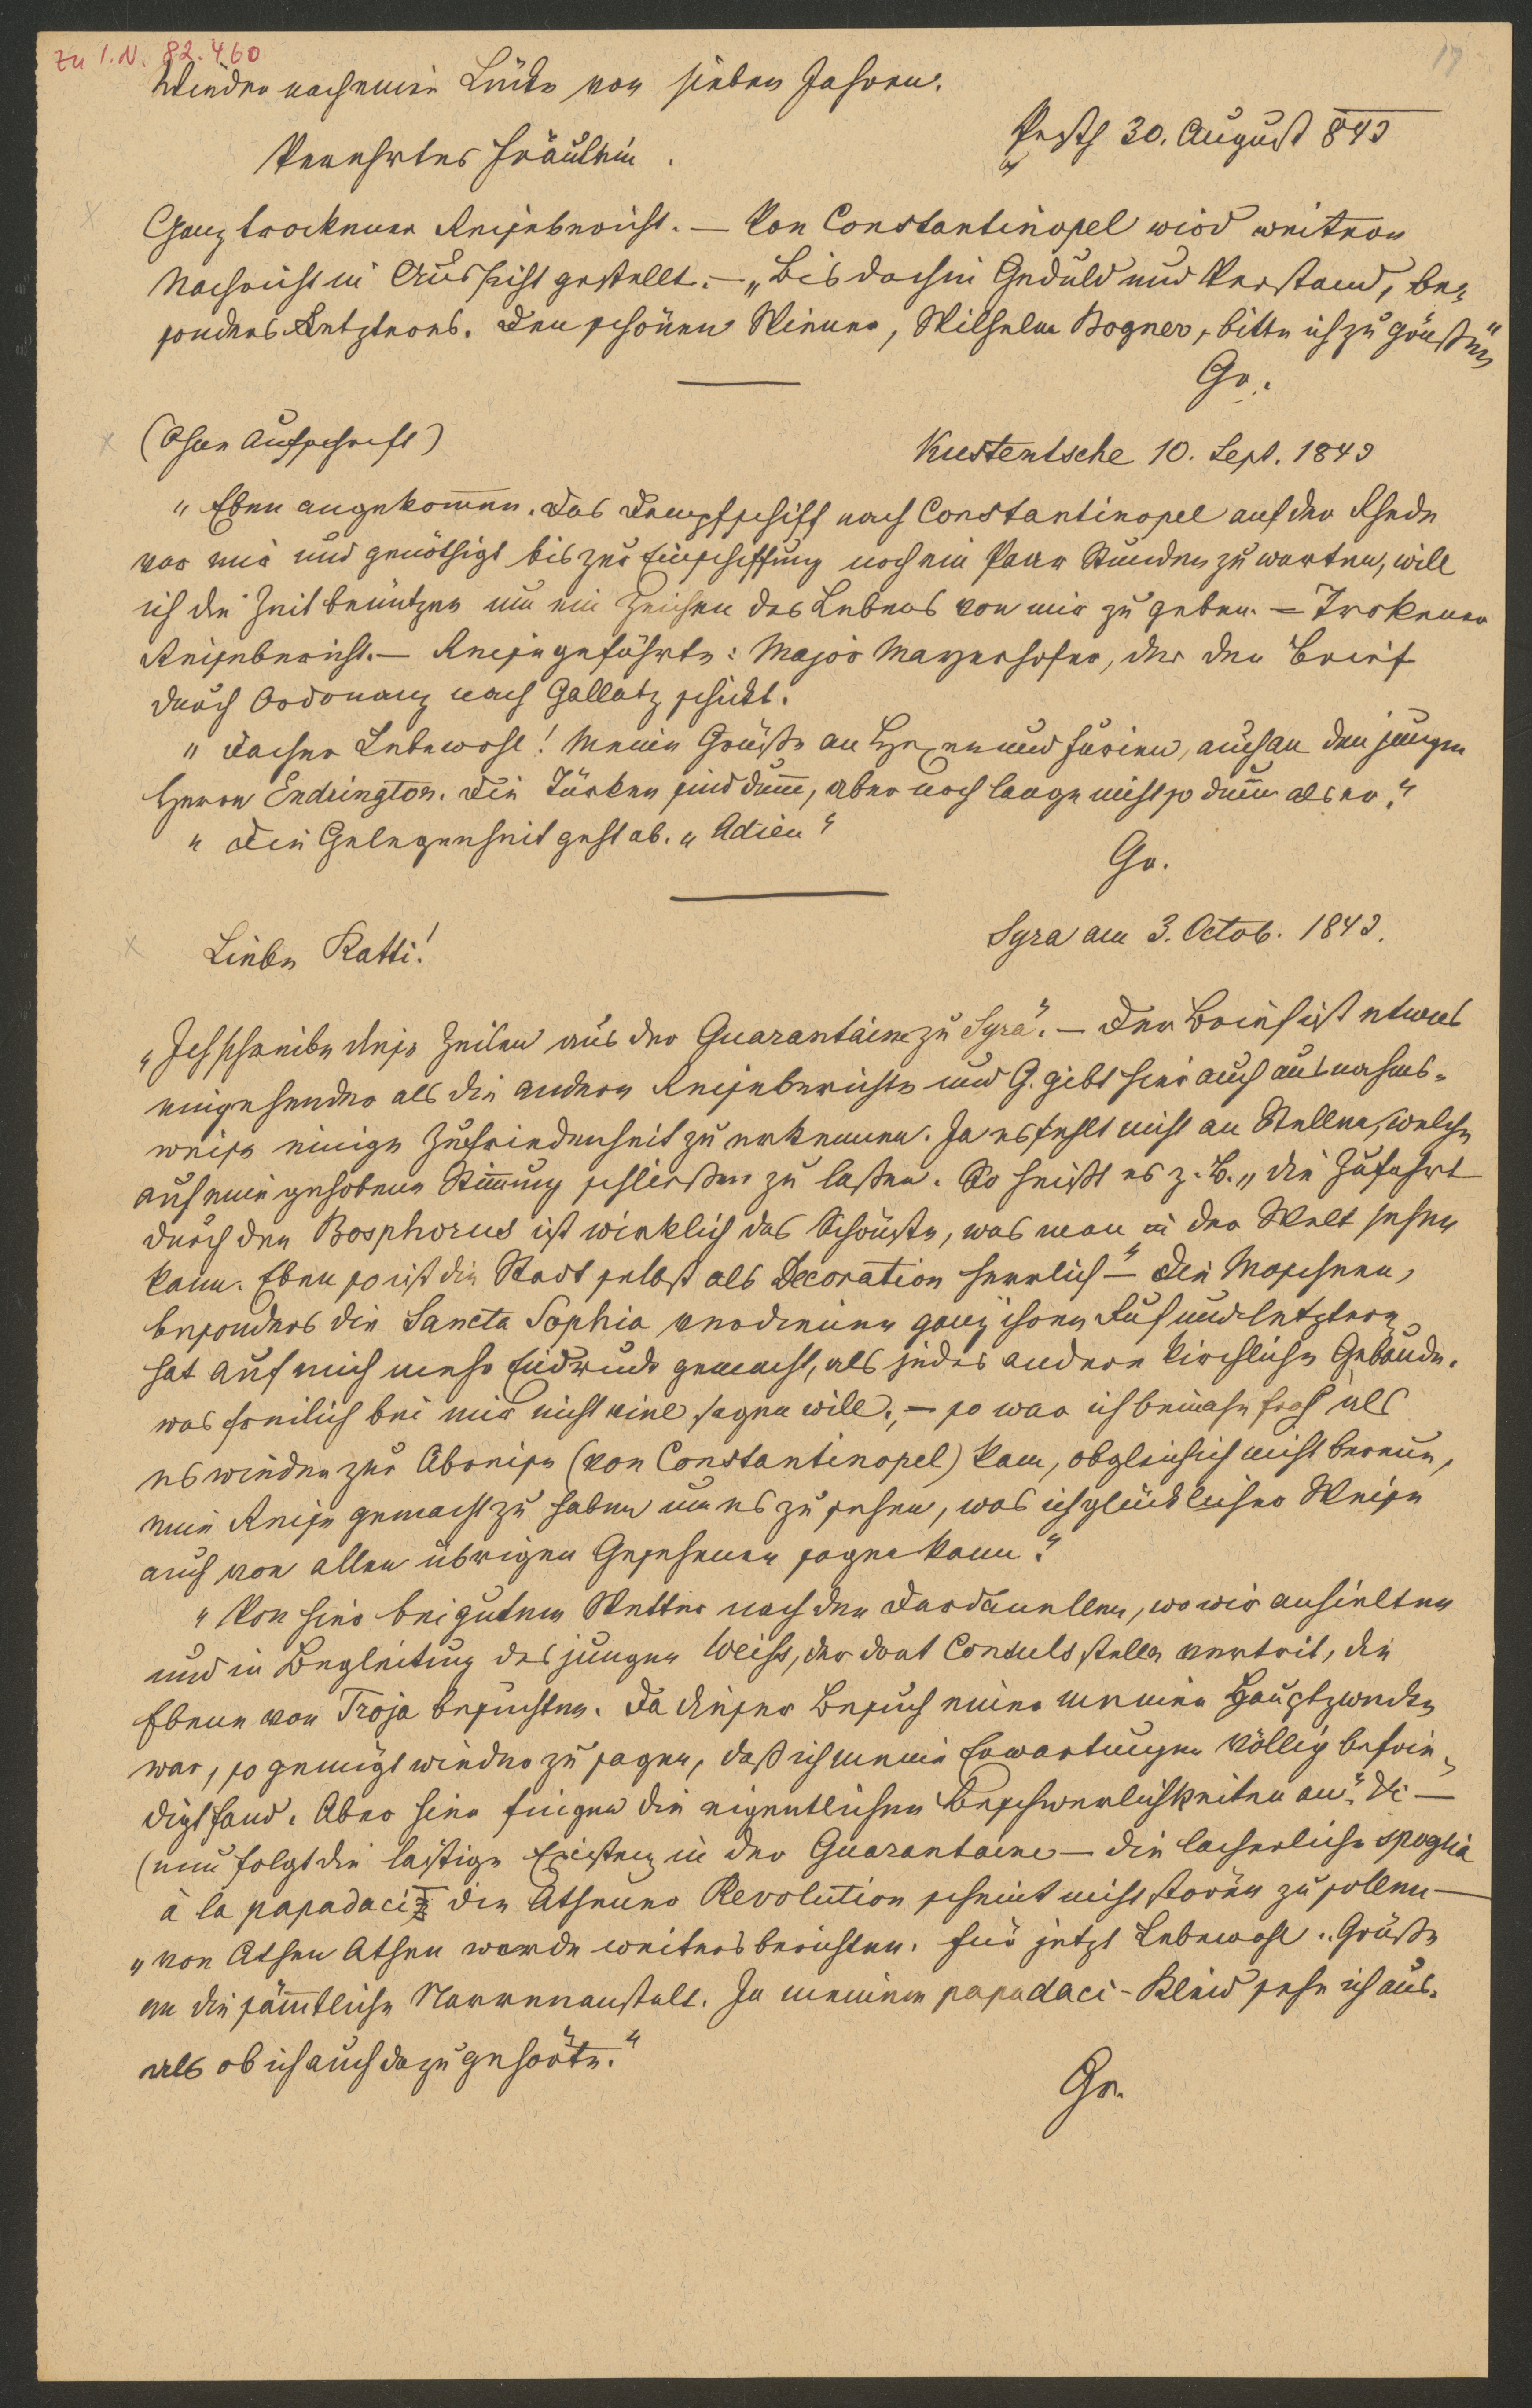 zu I.N. 82.460
17
Wieder nach einer Lücke von sieben Jahren.
Pesth 30. August 843
Verehrtes Fräulein.
Ganz trockener Reisebericht. — Von Constantinopel wird weitere
Nachricht in Aussicht gestellt. — „Bis dahin Geduld und Verstand, be-
sonders Letzteres. Den schönen Wiener, Wilhelm Bogner, bitte ich zu grüßen"
Gr.
(Ohne Aufschrift)
Kustentsche 10. Sept. 1843
„Eben angekommen. Das Dampfschiff nach Constantinopel auf der Rhede
vor mir und genöthigt bis zur Einschiffung noch ein Paar Stunden zu warten, will
ich die Zeit benützen um ein Zeichen des Lebens von mir zu geben. — Trokener
Reisebericht. — Reisegefährte: Major Mayerhofer, der den Brief
durch Ordonanz nach Gallatz schickt.
„Daher Lebewohl! Meine Grüße an Hexen und Furien, auch an den jungen
Herrn Endrington. Die Türken sind dumm, aber noch lange nicht so dumm als er."
„Die Gelegenheit geht ab. „Adieu"
Gr.
Syra am 3. Octob. 1843.
Liebe Katti!
„Ich schreibe diese Zeilen aus der Quarantaine zu Syra". — Der Brief ist etwas
eingehender als die andern Reiseberichte und G. gibt hier auch ausnahms-
weise einige Zufriedenheit zu erkennen. Ja es fehlt nicht an Stellen, welche
auf eine gehobene Stimmung schließen zu laßen. So heißt es z. B. „die Zufahrt
durch den Bosphorus ist wirklich das Schönste, was man in der Welt sehen
kann. Eben so ist die Stadt selbst als Decoration herrlich" — Die Moscheen,
besonders die Sancta Sophia verdienen ganz ihren Ruf und letztere
hat auf mich mehr Eindruck gemacht, als jedes andere kirchliche Gebäude.
was freilich bei mir nicht viel sagen will. — so war ich beinahe froh als
es wieder zur Abreise (von Constantinopel) kam, obgleich ich nicht bereue,
eine Reise gemacht zu haben um es zu sehen, was ich glücklicher Weise
auch von allen übrigen Gesehenen sagen kann."
„Von hier bei gutem Wetter nach den Dardanellen, wo wir anhielten
und in Begleitung des jungen Weiss, der dort Consulsstelle vertrit, die
Ebene von Troja besuchten. Da dieser Besuch einer meiner Hauptzwecke
war, so genügt wieder zu sagen, daß ich meine Erwartungen völlig befrie-
digt fand. Aber hier fingen die eigentlichen Beschwerlichkeiten an". —
(nun folgt die lästige Existenz in der Quarantaine — die lächerliche spoglia
à la papadaci die Athener Revolution scheint nicht stören zu sollen —
„von Athen Athen werde weiters berichten. Für jetzt Lebewohl. Grüße
an die sämmtliche Narrenanstalt. In meinem papadaci-Kleid sehe ich aus.
als ob ich auch dazu gehörte."
Gr.